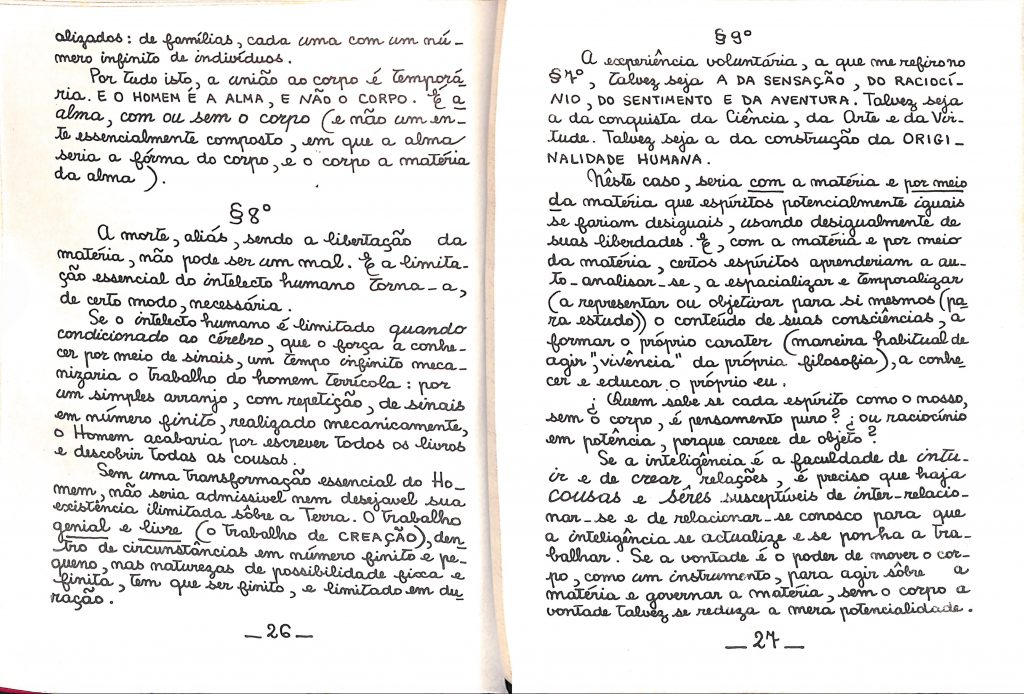 alizados: de famílias, cada uma com um nú-
mero infinito de indivíduos.
Por tudo isto, a união ao corpo é temporá
ria. E O HOMEM É A ALMA, E NÃO O CORPO. É a
alma, com ou sem o corpo (e não um en-
te essencialmente composto, em que a alma
seria a fórma do corpo, e o corpo a matéria
da alma).
§8º
A morte, aliás, sendo a libertação da
matéria, não pode ser um mal. E a limita-
ção essencial do intelecto humano torna-a,
de certo modo, necessária.
Se o intelecto humano é limitado quando
condicionado ao cérebro, que o força a conhe-
cer por meio de sinais, um tempo infinito meca-
nizaria o trabalho do homem terrícola: por
um simples arranjo, com repetição, de sinais
em número finito, realizado mecanicamente,
o Homem acabaria por escrever todos os livros
e descobrir todas as cousas.
Sem uma transformação essencial do Ho-
mem, não seria admissivel nem desejavel sua
existência ilimitada sôbre a Terra. O trabalho
genial e livre (o trabalho de CREAÇÃO), den-
tro de circunstâncias em número finito e pe-
queno, nas naturezas de possibilidade fixa e
finita, tem que ser finito, e limitado em du-
ração.
_26_
§9º
A experiência voluntária, a que me refiro no
§7º, talvez seja A DA SENSAÇÃO, DO RACIOCÍ-
NIO, DO SENTIMENTO E DA AVENTURA. Talvez seja
a da conquista da Ciência, da Arte e da Vir-
tude. Talvez seja a da construção da ORIGI-
NALIDADE HUMANA.
Nêste caso, seria com a matéria e por meio
da matéria que espíritos potencialmente iguais
se fariam desiguais, usando desigualmente de
suas liberdades. E, com a matéria e por meio
da matéria, certos espíritos aprenderiam a au-
to-analisar-se, a espacializar e temporalizar
(a representar ou objetivar para si mesmos (pa
ra estudo)) o conteúdo de suas consciências, a
formar o próprio carater (maneira habitual de
agir, "vivência" da própria filosofia), a conhe
cer e educar o próprio eu.
¿Quem sabe se cada espírito como o nosso,
sem o corpo, é pensamento puro? ¿ou raciocínio
em potência, porque carece de objeto?
Se a inteligência é a faculdade de intu-
ir e de crear relações, é preciso que haja
cousas e sêres susceptíveis de inter-relacio-
nar-se e de relacionar-se conosco para que
a inteligência se actualize e se ponha a tra-
balhar. Se a vontade é o poder de mover o cor-
po, como um instrumento, para agir sôbre a
matéria e governar a matéria, sem o corpo a
vontade talvez se reduza a mera potencialidade.
_27_